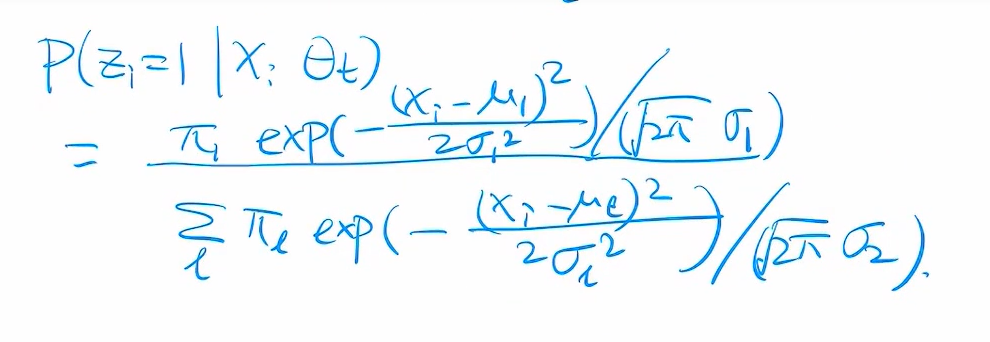 P(z_i=1 | x_i θ_t)
= π_1 exp(-(x_i-μ_1)^2/2σ_1^2)/(√2π σ_1)
Σ_l π_l exp(-(x_i-μ_l)^2/2σ_l^2)/(√2π σ_2).